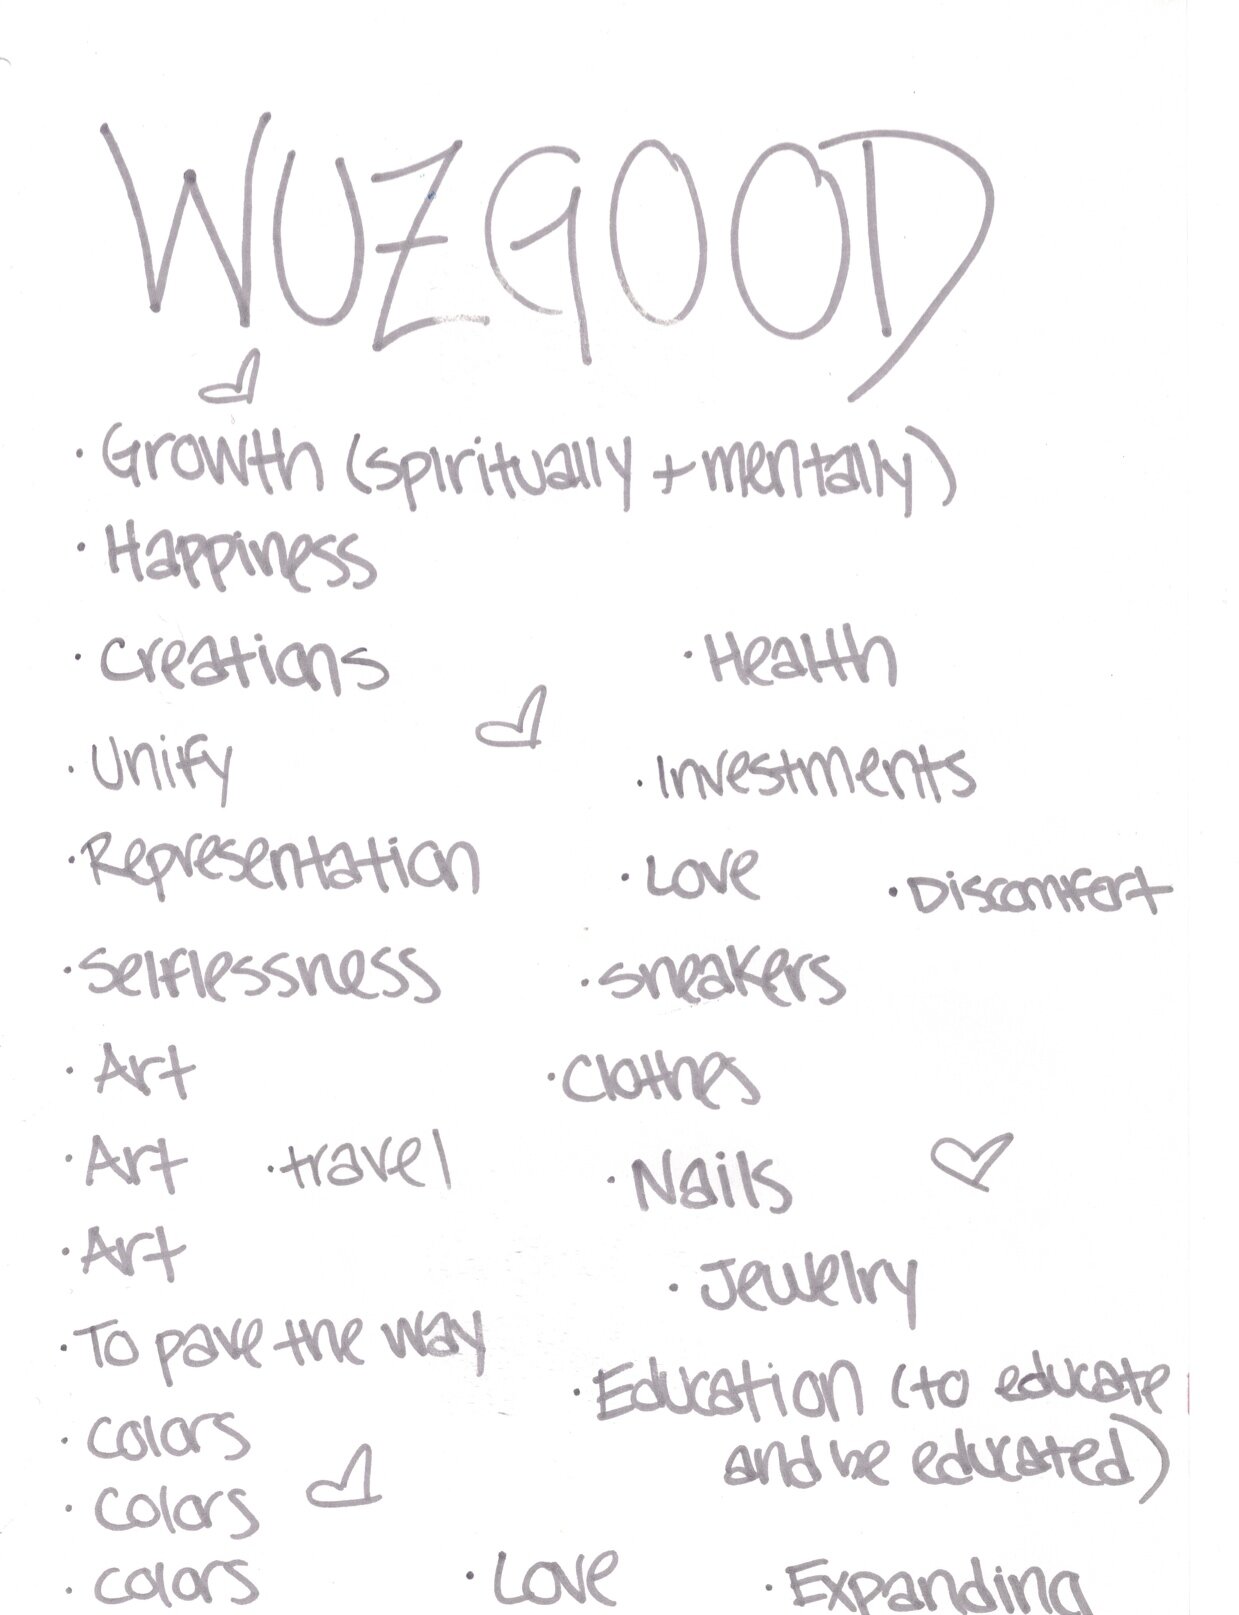 WUZGOOD
· Growth (spiritually + mentally)
· Happiness
· Creations
· Health
· Unify
· Investments
· Representation
· Love
· Discomfort
· Selflessness
· Sneakers
· Art
· Clothes
· Art
· travel
· Nails
· Art
· Jewelry
· To pave the way
· Education (to educate
and be educated)
· colors
· colors
· colors
· Love
· Expanding